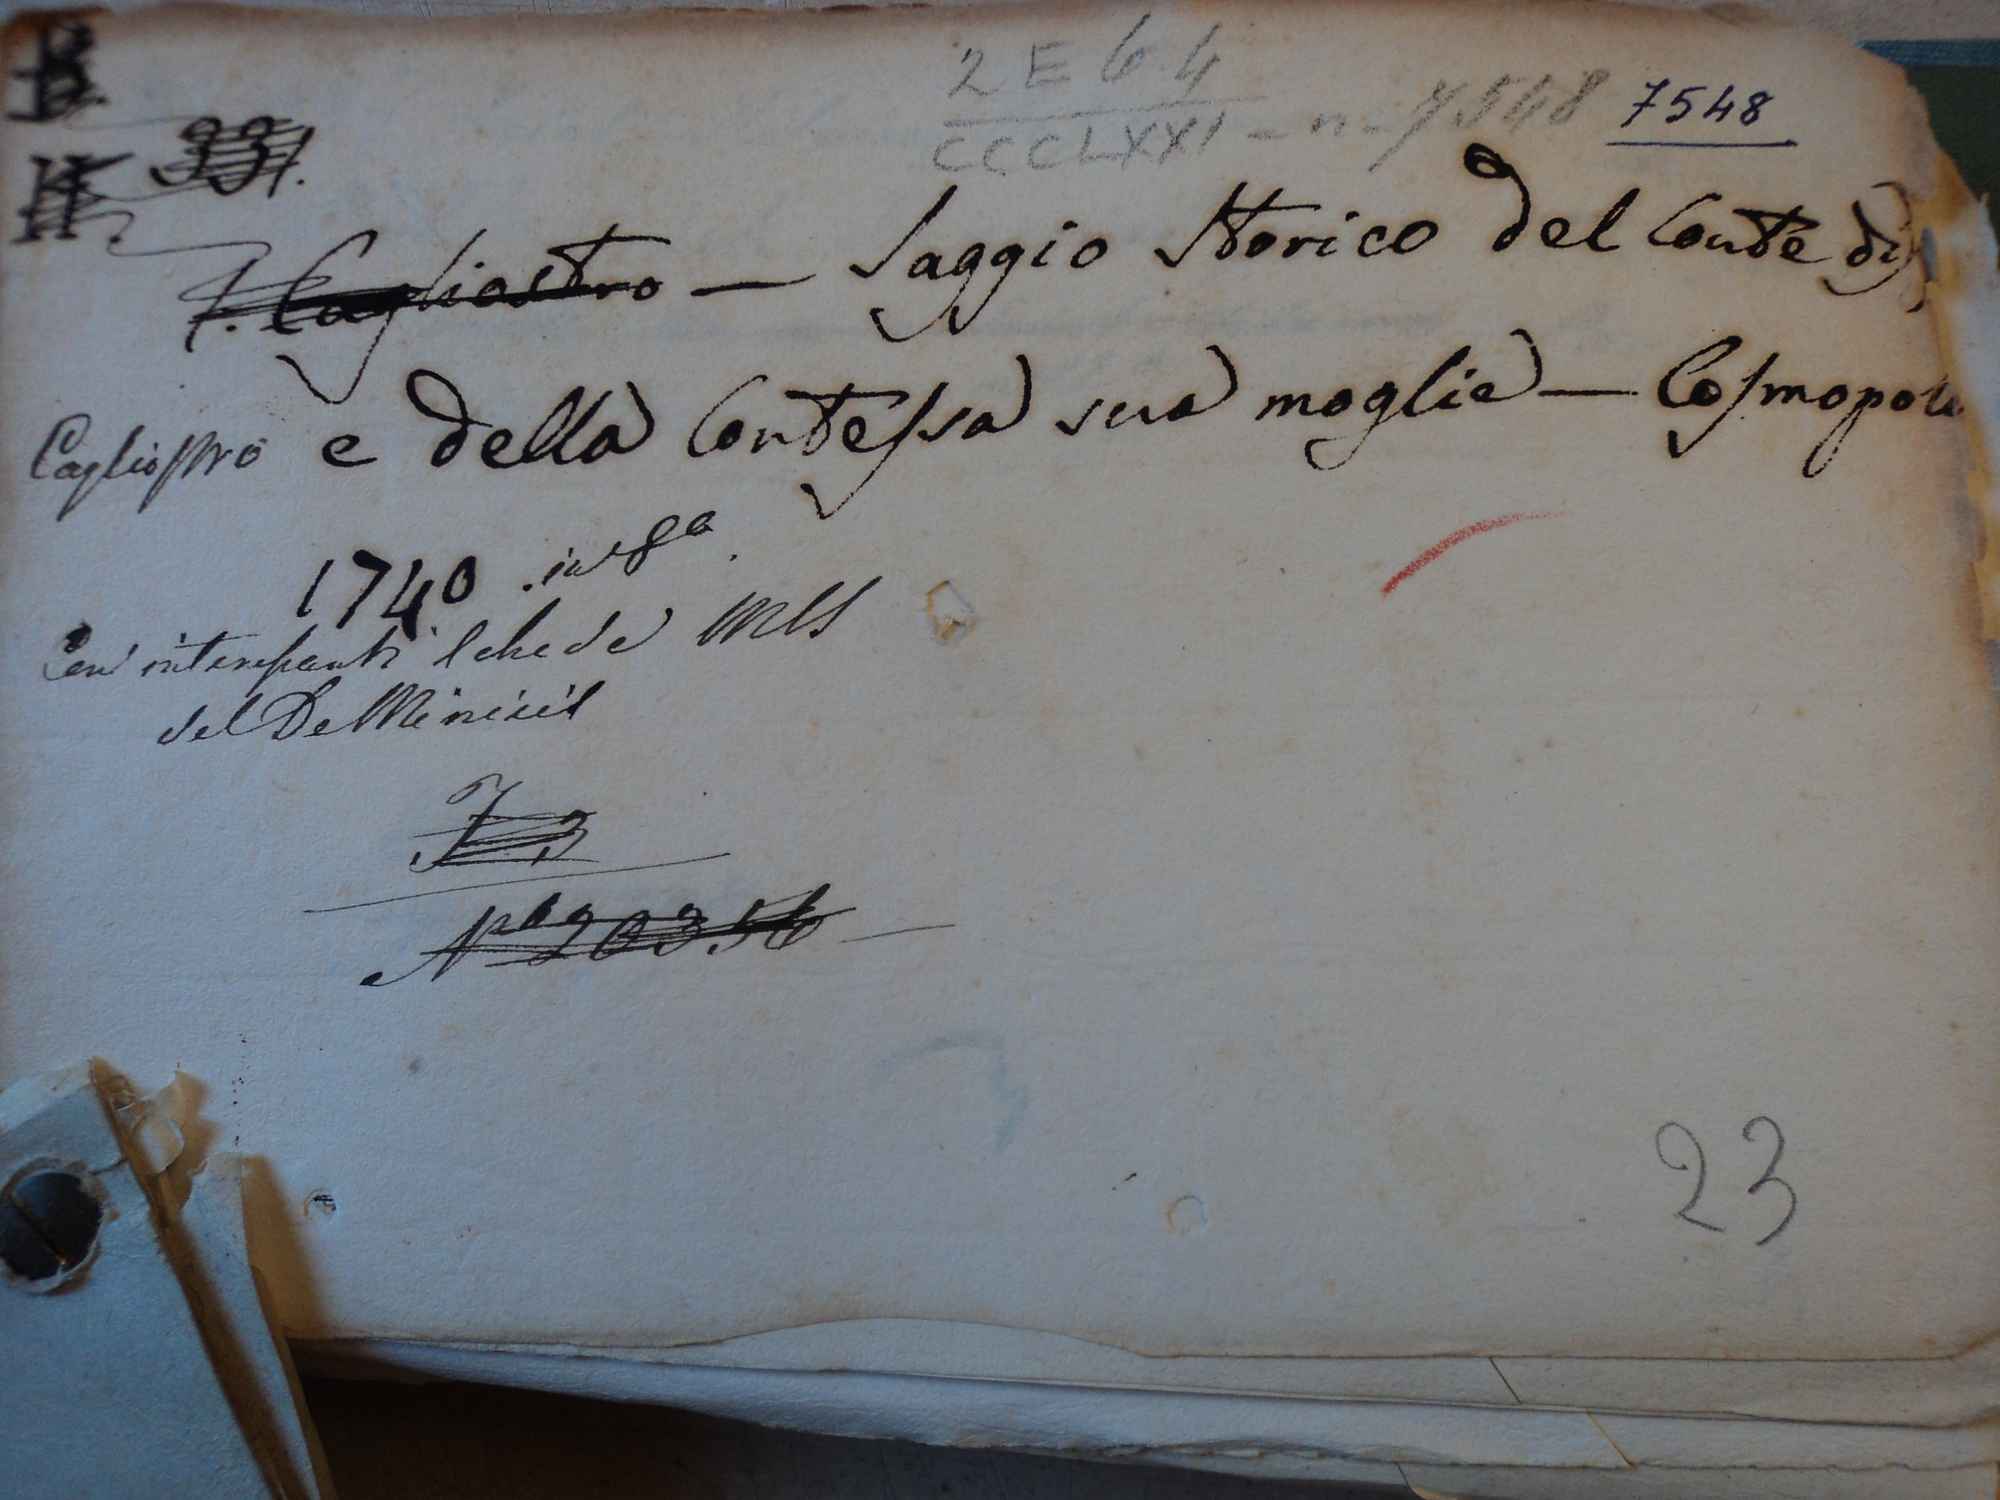 2 E 6 4
CCCLXXI - n - 7548 7548
331.
Cagliostro — Saggio Storico del Conte di
Cagliostro e della Contessa sua moglie — Cosmopoli
1740 . in 8°.
Con interessanti schede MSS
del De Minicis
23